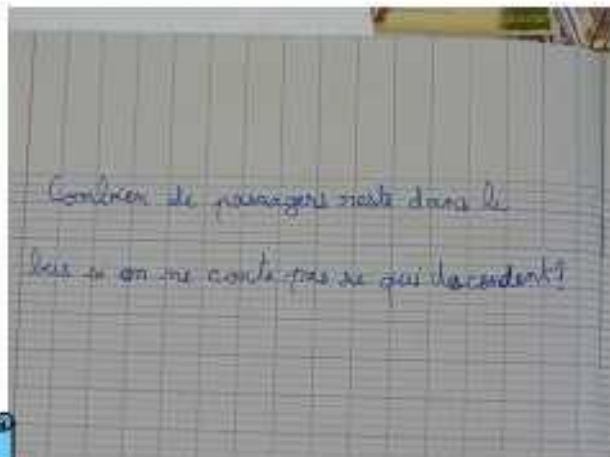 Combien de passagers reste dans le
bus si on ne conte pas se qui descendent?